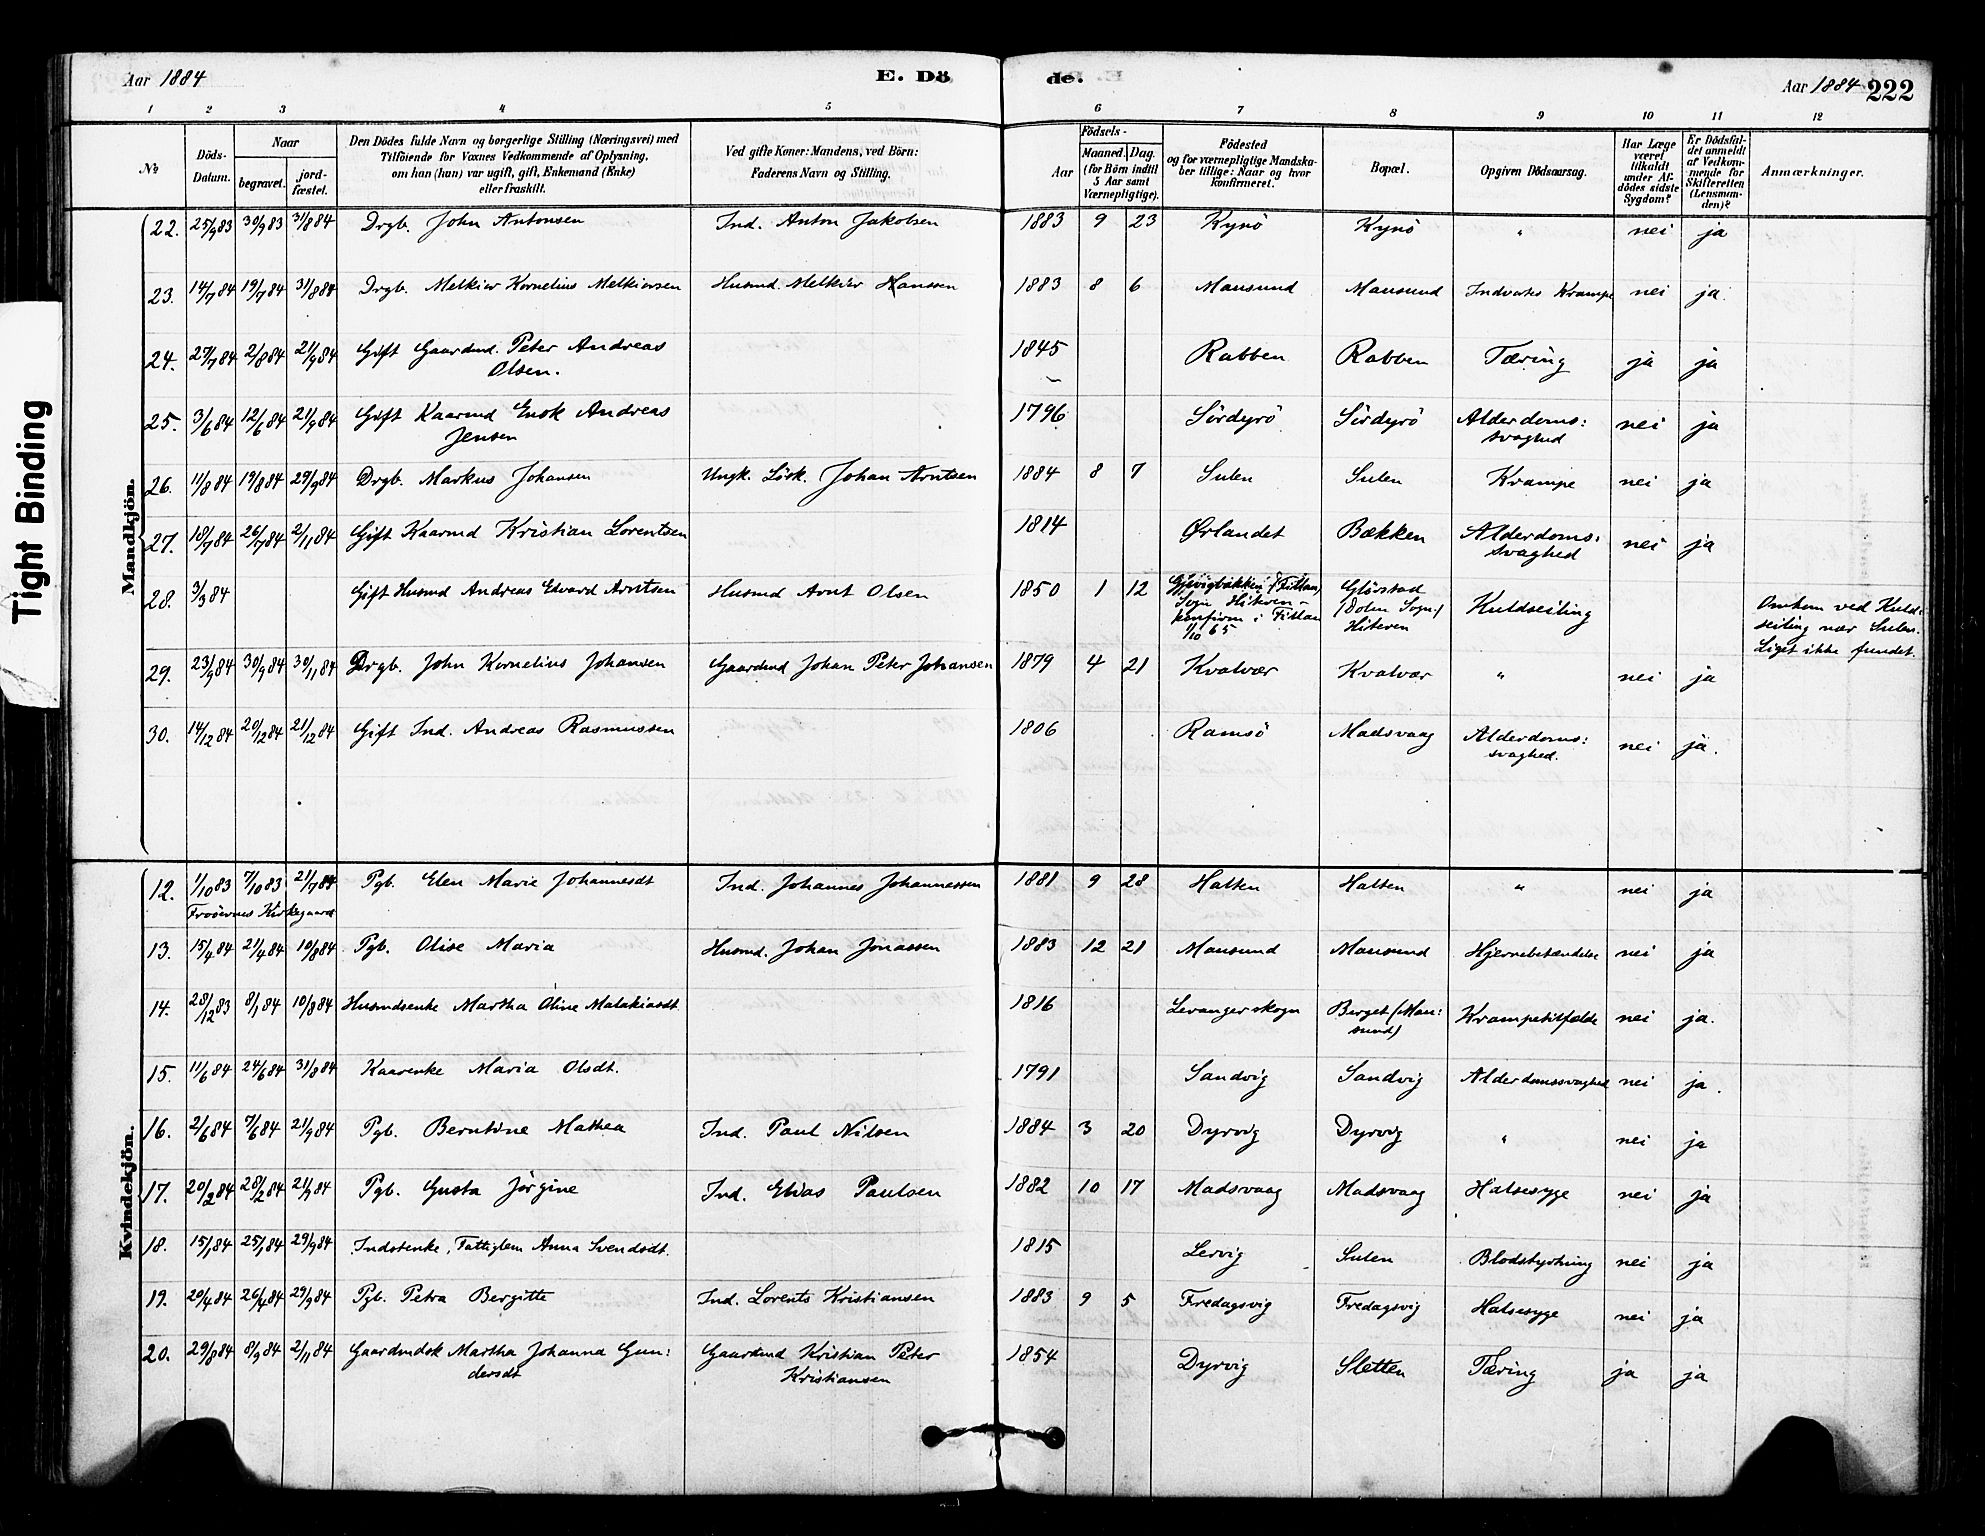 Aar 1884
E. Dö
de.
Aar 1884
222
1 2 3 4 5 6 7 8 9 10 11 12
No
Döds-
Datum.
Naar
begravet.
jord-
fæstet.
Den Dödes fulde Navn og borgerlige Stilling (Næringsvei) med
Tilföiende for Voxnes Vedkommende af Oplysning,
om han (hun) var ugift, gift, Enkemand (Enke)
eller fraskilt.
Ved gifte Koner: Mandens, ved Börn:
Faderens Navn og Stilling.
Födsels-
Aar
Maaned. Dag.
(for Börn indtil
5 Aar samt
Værnepligtige).
Födested
og for værnepligtige Mandska-
ber tillige: Naar og hvor
konfirmeret.
Bopæl.
Opgiven Dödsaarsag.
Har Læge
været
tilkaldt
under Af-
dödes sidste
Sygdom?
Er Dödsfal-
det anmeldt
af Vedkom-
mende for
Skifteretten
(Lensman-
den)?
Anmærkninger.
Tight Binding
Mandkjön.
22. 25/9 83 30/9 83 31/8 84 Drgb. John Antonsen Ind. Anton Jakobsen 1883 9 23 Kynö Kynö " nei ja
23. 14/7 84 19/7 84 31/8 84 Drgb. Melkior Kornelius Melkiorsen Husmd. Melkior Hanssen 1883 8 6 Mausund Mausund Indvortes Krampe nei ja.
24. 27/7 84 2/8 84 21/9 84 Gift Gaardmd. Peter Andreas
Olsen. 1845 Rabben Rabben Tæring ja ja
25. 3/6 84 12/6 84 21/9 84 Gift Kaarmd Enok Andreas
Jensen 1796 Sördyrö Sördyrö Alderdoms:
svaghed nei ja
26. 11/8 84 19/8 84 29/9 84 Drgb. Markus Johansen Ungk. Lösk. Johan Arntsen 1884 8 7 Sulen Sulen Krampe nei ja
27. 18/7 84 26/7 84 2/11 84 Gift Kaarmd Kristian Lorentsen 1814 Ørlandet Bækken Alderdoms:
svaghed nei ja
28. 3/3 84 Gift Husmd Andreas Edvard Arntsen Husmd Arnt Olsen 1850 1 12 Gjövigbakken i Fillan
Sogn Hiteren -
konfirm i Fillan
1/10 65 Glörstad
(Dolm Sogn)
Hiteren Kuldseiling Omkom ved Kuld:
seiling nær Sulen.
Liget ikke fundet.
29. 23/9 84 30/9 84 30/11 84 Drgb. John Kornelius Johansen Gaardmd Johan Peter Johansen 1879 4 21 Kvalvær Kvalvær " nei ja
30. 14/12 84 20/12 84 21/12 84 Gift Ind. Andreas Rasmussen 1806 Ramsö Madsvaag Alderdoms:
svaghed. nei ja.
Kvindekjön.
12. 1/10 83 7/10 83 21/7 84 Pgb. Elen Marie Johannesdt Ind. Johannes Johannessen 1881 9 28 Halten Halten " nei ja
Froöernes Kirkegaard
13. 15/4 84 21/4 84 10/8 84 Pgb. Olise Maria Husmd. Johan Jonassen 1883 12 21 Mausund Mausund Hjernebetændelse nei ja
14. 28/12 83 8/1 84 10/8 84 Husmdsenke Martha Oline Malakiasdt 1816 Levangerskogn Berget (Mau:
sund) Krampetilfælde nei ja.
15. 11/6 84 24/6 84 31/8 84 Kaarenke Maria Olsdt. 1791 Sandvig Sandvig Alderdomssvaghed nei ja.
16. 2/6 84 7/6 84 21/9 84 Pgb. Berntine Mathea Ind. Paul Nilsen 1884 3 20 Dyrvig Dyrvig " nei ja
17. 20/2 84 28/2 84 21/9 84 Pgb. Gusta Jörgine Ind. Elias Paulsen 1882 10 17 Madsvaag Madsvaag Halsesyge nei ja
18. 15/1 84 25/1 84 29/9 84 Indstenke, Fattiglem Anna Svendsdt. 1815 Lervig Sulen Blodstyrtning nei ja
19. 20/4 84 26/4 84 29/9 84 Pgb. Petra Bergitte Ind. Lorents Kristiansen 1883 9 5 Fredagsvig Fredagsvig Halsesyge nei ja
20. 29/8 84 8/9 84 2/11 84 Gaardmdsk Martha Johanna Gun:
dersdt Gaardmd Kristian Peter
Kristiansen 1854 Dyrvig Sletten Tæring ja ja